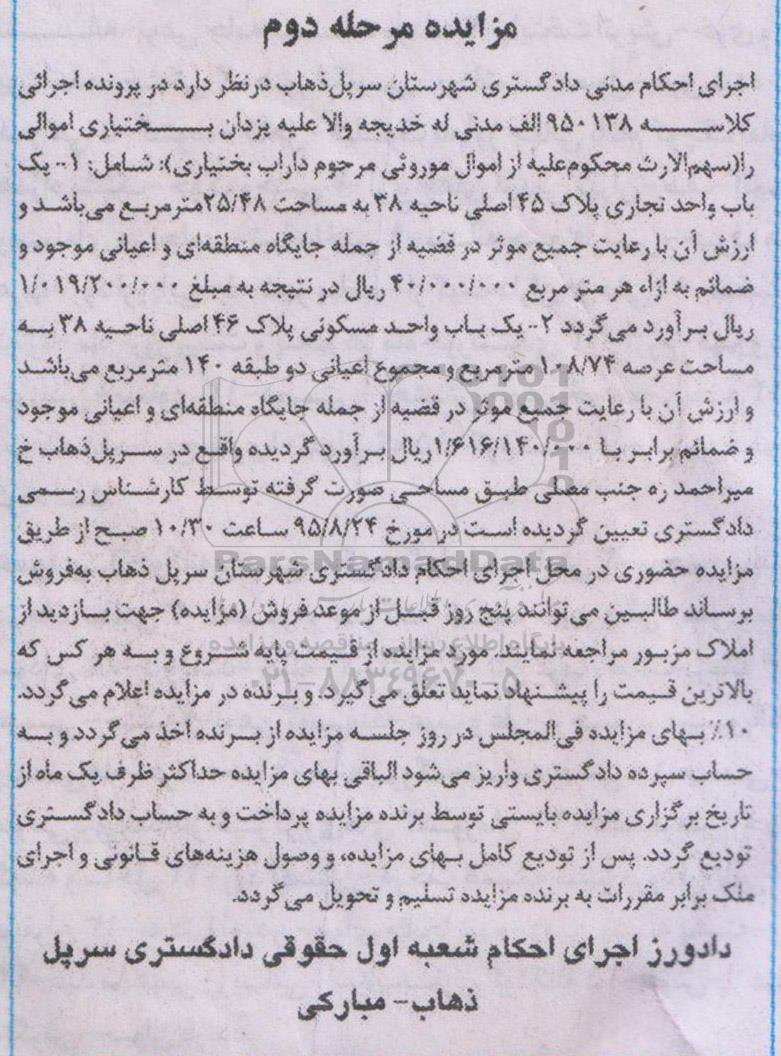 مزایده مرحله دوم
اجرای احکام مدنی دادگستری شهرستان سرپل‌ذهاب درنظر دارد در پرونده اجرائی
کلاســـه ۹۵۰۱۳۸ الف مدنی له خدیجه والا علیه یزدان بـــختیاری اموالی
را(سهم‌الارث محکوم‌علیه از اموال موروثی مرحوم داراب بختیاری): شامل: ۱- یک
باب واحد تجاری پلاک ۴۵ اصلی ناحیه ۳۸ به مساحت ۲۵/۴۸مترمربع می‌باشد و
ارزش آن با رعایت جمیع موثر در قضیه از جمله جایگاه منطقه‌ای و اعیانی موجود و
ضمائم به ازاء هر متر مربع ۴۰/۰۰۰/۰۰۰ ریال در نتیجه به مبلغ ۱/۰۱۹/۲۰۰/۰۰۰
ریال برآورد می‌گردد ۲- یک باب واحد مسکونی پلاک ۴۶ اصلی ناحیه ۳۸ به
مساحت عرصه ۱۰۸/۷۴ مترمربع و مجموع اعیانی دو طبقه ۱۴۰ مترمربع می‌باشد
و ارزش آن با رعایت جمیع موثر در قضیه از جمله جایگاه منطقه‌ای و اعیانی موجود
و ضمائم برابر با ۱/۶۱۶/۱۴۰/۰۰۰ریال برآورد گردیده واقع در سرپل‌ذهاب خ
میراحمد ره جنب مصلی طبق مساحی صورت گرفته توسط کارشناس رسمی
دادگستری تعیین گردیده است در مورخ ۹۵/۸/۲۴ ساعت ۱۰/۳۰ صبح از طریق
مزایده حضوری در محل اجرای احکام دادگستری شهرستان سرپل ذهاب به‌فروش
برساند طالبین می‌توانند پنج روز قبل از موعد فروش (مزایده) جهت بازدید از
املاک مزبور مراجعه نمایند. مورد مزایده از قیمت پایه شروع و به هر کس که
بالاترین قیمت را پیشنهاد نماید تعلق می‌گیرد. و برنده در مزایده اعلام می‌گردد.
۱۰٪ بهای مزایده فی‌المجلس در روز جلسه مزایده از برنده اخذ می‌گردد و به
حساب سپرده دادگستری واریز می‌شود الباقی بهای مزایده حداکثر ظرف یک ماه از
تاریخ برگزاری مزایده بایستی توسط برنده مزایده پرداخت و به حساب دادگستری
تودیع گردد. پس از تودیع کامل بهای مزایده، و وصول هزینه‌های قانونی و اجرای
ملک برابر مقررات به برنده مزایده تسلیم و تحویل می‌گردد.
دادورز اجرای احکام شعبه اول حقوقی دادگستری سرپل
ذهاب- مبارکی
ParsNamadData
پایگاه اطلاع رسانی مناقصه و مزایده
۰۲۱-۸۸۳۴۹۶۷۰-۵